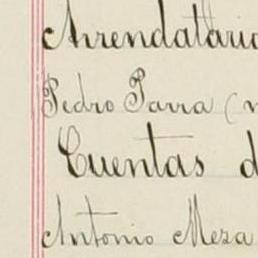 Arrendatario
Pedro Parra (
Cuentas d
Antonio Meza